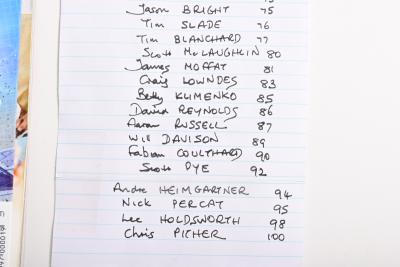 Jason BRIGHT 75
Tim SLADE 76
Tim BLANCHARD 77
Scott McLAUGHLIN 80
James MOFFAT 81
Craig LOWNDES 83
Betty KLIMENKO 85
David REYNOLDS 86
Aaron RUSSELL 87
Will DAVISON 89
Fabian COULTHARD 90
Scott PYE 92
Andre HEIMGARTNER 94
Nick PERCAT 95
Lee HOLDSWORTH 98
Chris PITHER 100